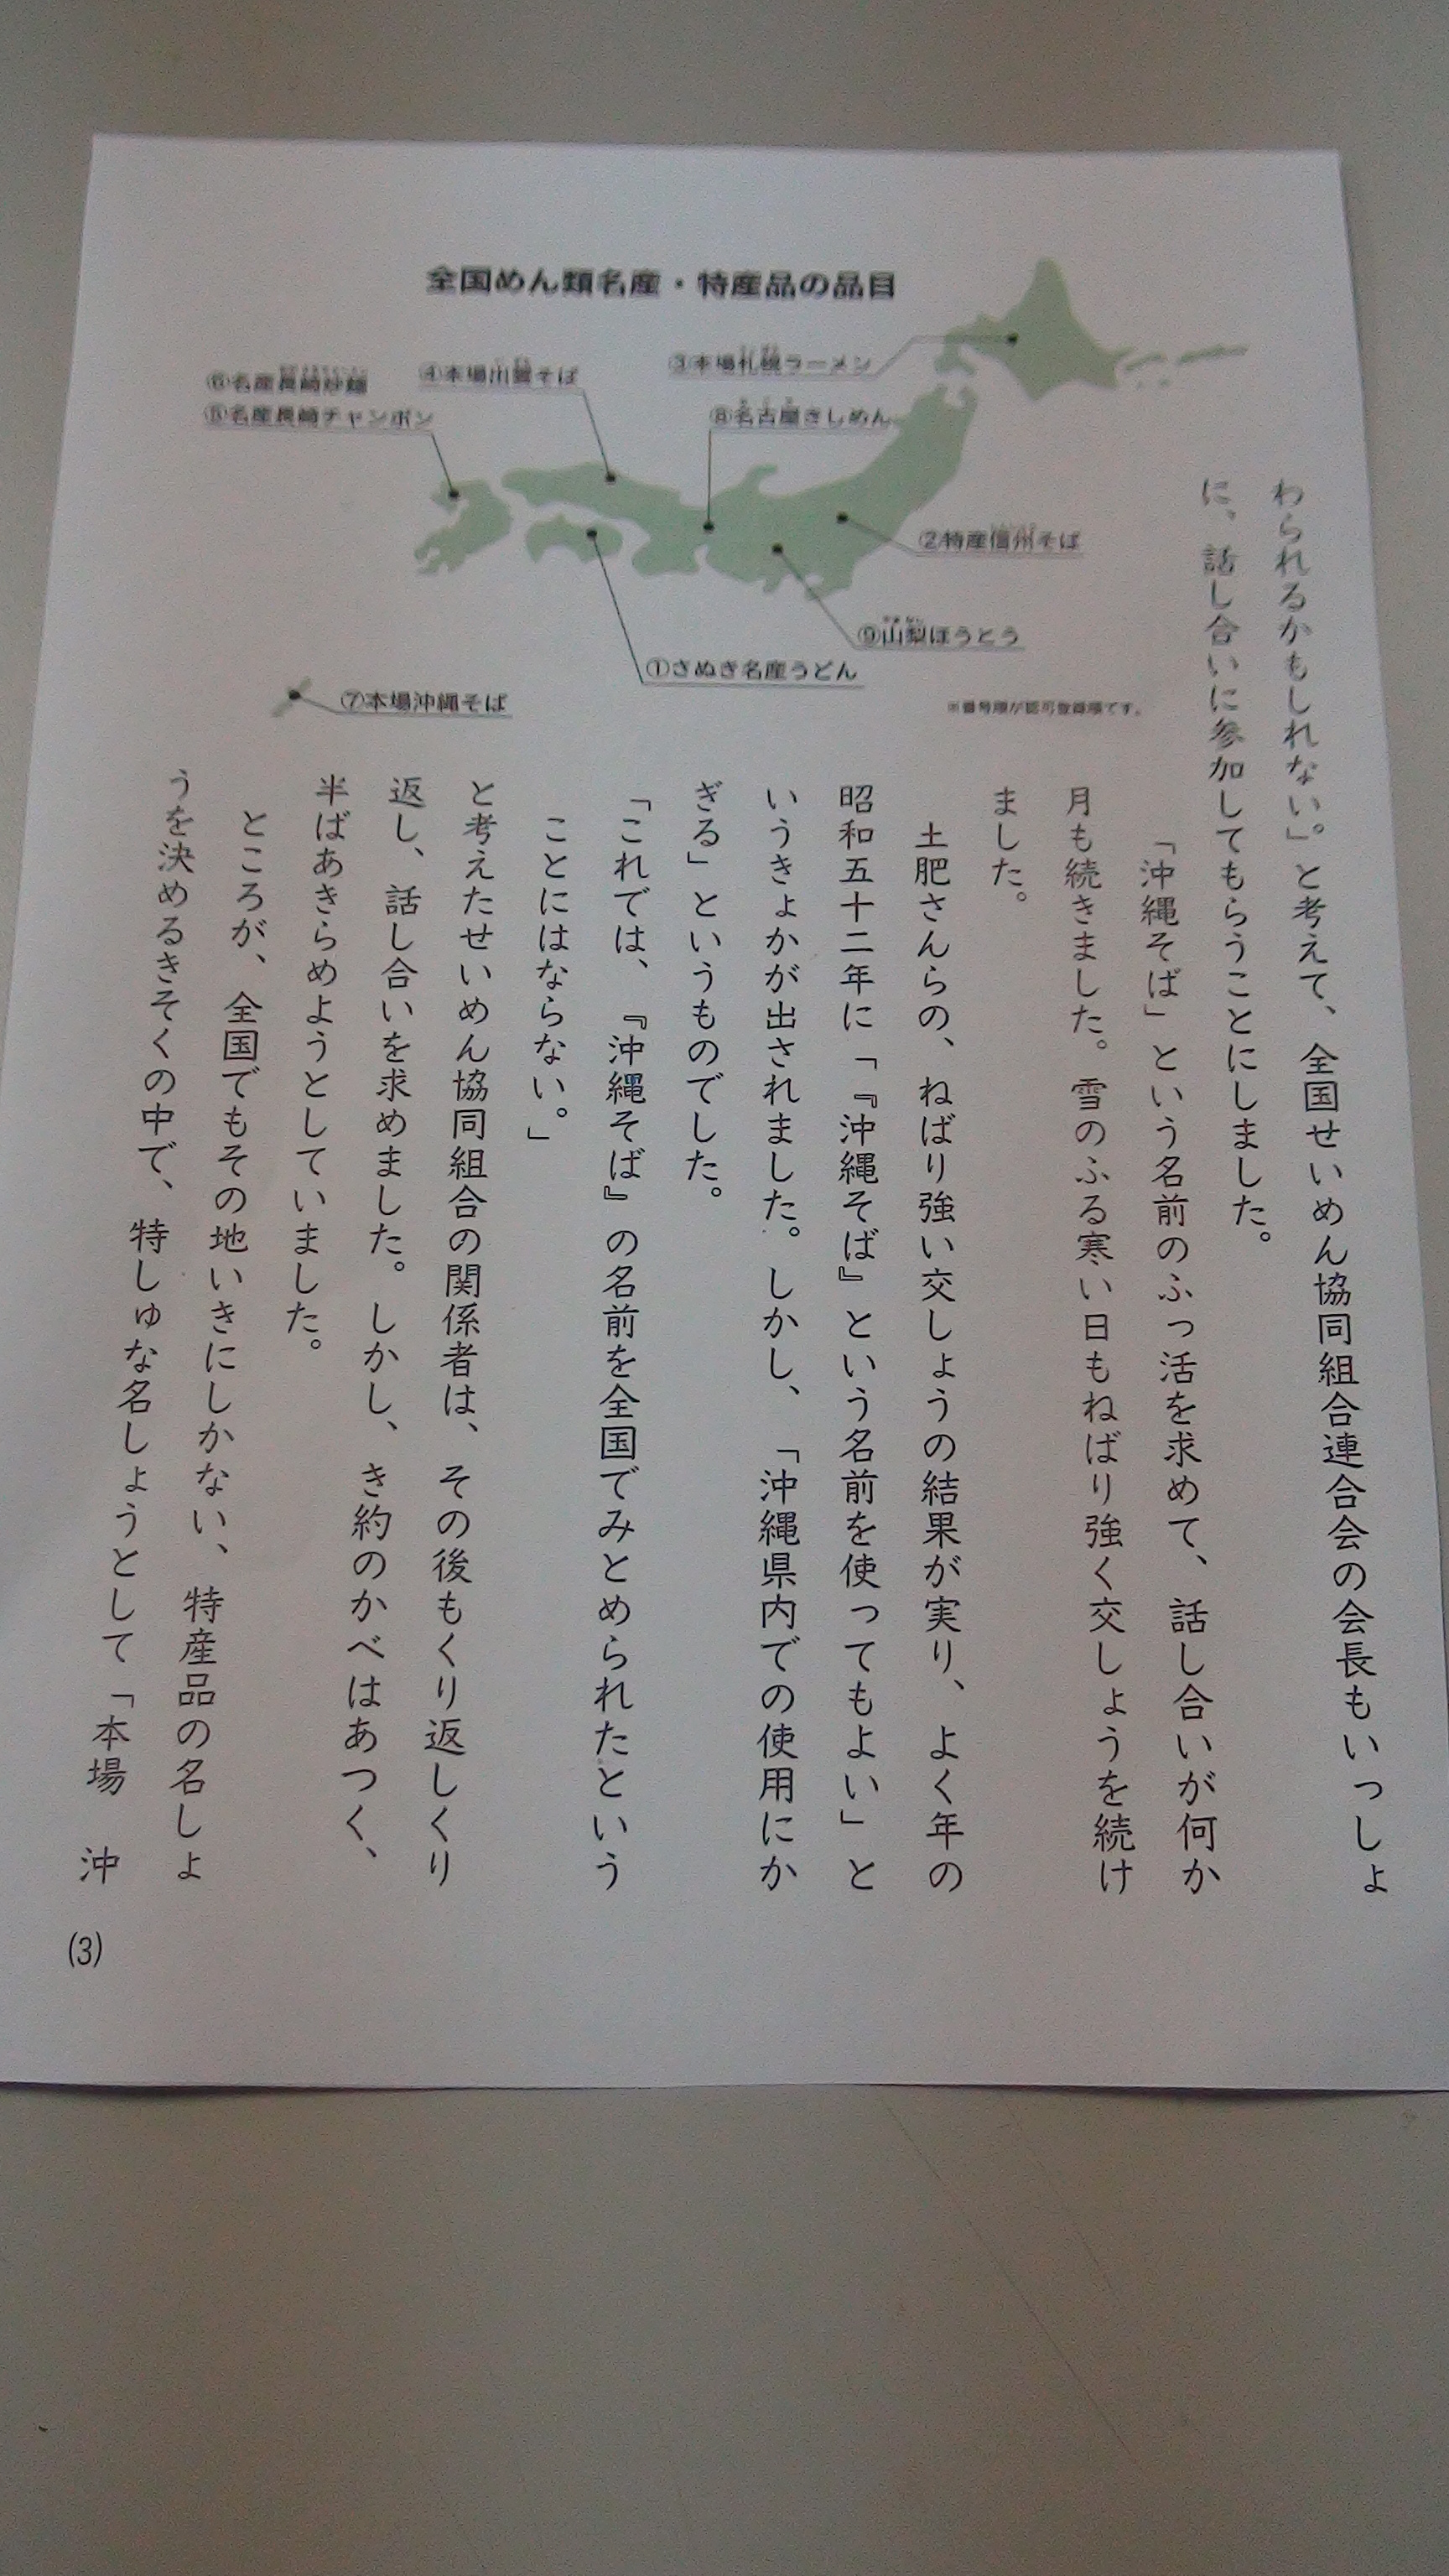 全国めん類名産・特産品の品目
③本場札幌ラーメン
④本場出雲そば
⑥名産長崎炒麺
⑤名産長崎チャンポン
⑧名古屋きしめん
②特産信州そば
⑨山梨ほうとう
①さぬき名産うどん
⑦本場沖縄そば
※番号順が認可登録順です。
わられるかもしれない」。と考えて、全国せいめん協同組合連合会の会長もいっしょ
に、話し合いに参加してもらうことにしました。
「沖縄そば」という名前のふっ活を求めて、話し合いが何か
月も続きました。雪のふる寒い日もねばり強く交しょうを続け
ました。
土肥さんらの、ねばり強い交しょうの結果が実り、よく年の
昭和五十二年に「『沖縄そば』という名前を使ってもよい」と
いうきょかが出されました。しかし、「沖縄県内での使用にか
ぎる」というものでした。
「これでは、『沖縄そば』の名前を全国でみとめられたという
ことにはならない。」
と考えたせいめん協同組合の関係者は、その後もくり返しくり
返し、話し合いを求めました。しかし、き約のかべはあつく、
半ばあきらめようとしていました。
ところが、全国でもその地いきにしかない、特産品の名しょ
うを決めるきそくの中で、特しゅな名しょうとして「本場 沖
(3)